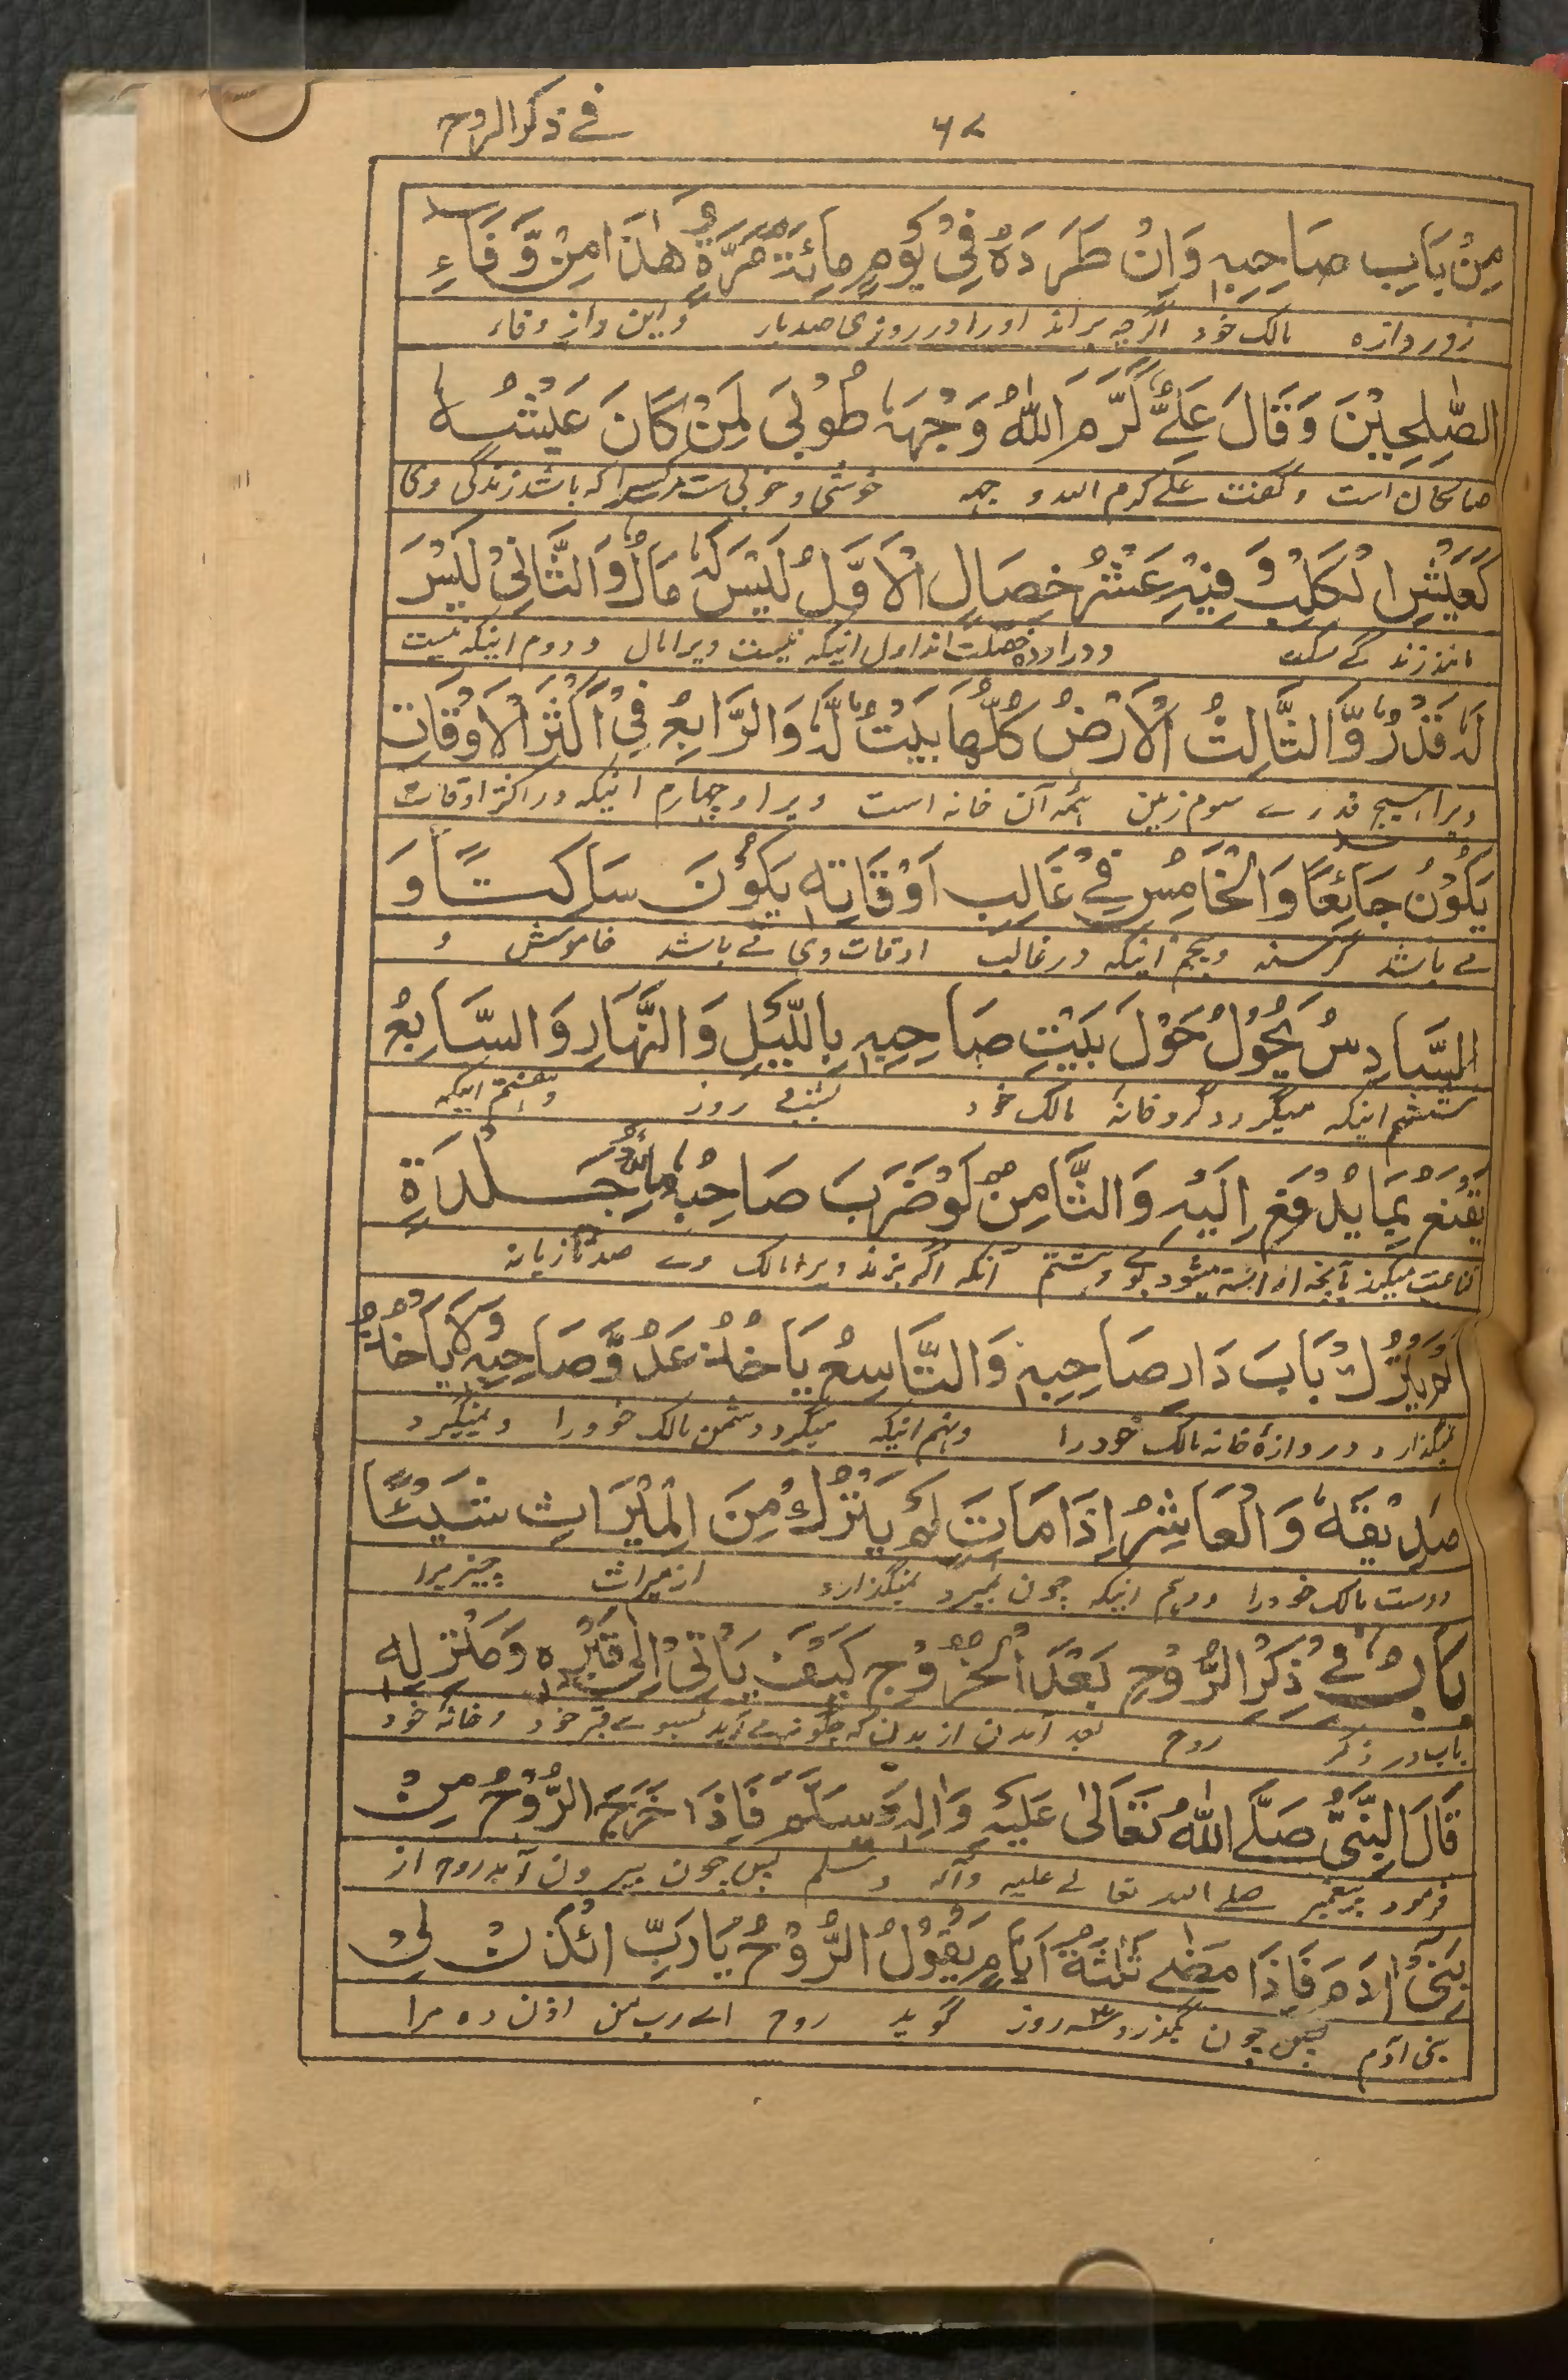 ٦٧ في ذكر الروح
مِنْ بَابِ صَاحِبِهٖ وَاِنْ طَرَدَهٗ فِيْ يَوْمٍ مِائَةَ مَرَّةٍ وَّهٰذَا مِنْ وَّفَاءِ
زور دازه مالک خود اگرچه براند او را در روزی صد بار و این از وفاء
الصّٰلِحِيْنَ وَقَالَ عَلِيٌّ كَرَّمَ اللّٰهُ وَجْهَهٗ طُوْبٰى لِمَنْ كَانَ عَيْشُهٗ
صالحان است و گفت علے کرم الله وجهه خوشی و خوبی ست مر کسیرا که باشد زندگی وی
كَعَيْشِ الْكَلْبِ وَفِيْهِ عَشْرُ خِصَالٍ الْاَوَّلُ لَيْسَ لَهٗ مَالٌ وَالثَّانِيْ لَيْسَ
مانند زندگے سگ و در او ده خصلت اند اول اینکه نیست ویرا مال و دوم اینکه نیست
لَهٗ قَدْرٌ وَّالثَّالِثُ الْاَرْضُ كُلُّهَا بَيْتٌ لَّهٗ وَالرَّابِعُ فِيْ اَكْثَرِ الْاَوْقَاتِ
ویرا هیچ قدرے سوم زمین همه آن خانه است ویرا و چهارم اینکه در اکثر اوقات
يَكُوْنُ جَائِعًا وَالْخَامِسُ فِيْ غَالِبِ اَوْقَاتِهٖ يَكُوْنُ سَاكِتًا وَ
مے باشد گرسنه و پنجم اینکه در غالب اوقات وی مے باشد خاموش و
السَّادِسُ يَحُوْلُ حَوْلَ بَيْتِ صَاحِبِهٖ بِاللَّيْلِ وَالنَّهَارِ وَالسَّابِعُ
ششم اینکه میگردد گرد خانهٔ مالک خود بشب و روز و هفتم اینکه
يَقْنَعُ بِمَا يُدْفَعُ اِلَيْهِ وَالثَّامِنُ لَوْ ضَرَبَ صَاحِبُهٗ مِائَةَ جَلْدَةٍ
قناعت میکند بآنچه انداخته میشود بوے و هشتم آنکه اگر بزند ویرا مالک وے صد تازیانه
لَمْ يَتْرُكْ بَابَ دَارِ صَاحِبِهٖ وَالتَّاسِعُ يَاْخُذُ عَدُوَّ صَاحِبِهٖ وَلَا يَاْخُذُ
نمیگذارد دروازهٔ خانه مالک خود را و نهم اینکه میگیرد دشمن مالک خود را و نمیگیرد
صَدِيْقَهٗ وَالْعَاشِرُ اِذَا مَاتَ لَمْ يَتْرُكْ مِنَ الْمِيْرَاثِ شَيْئًا
دوست مالک خود را و دهم اینکه چون بمیرد نمیگذارد از میراث چیز یرا
بَابٌ فِيْ ذِكْرِ الرُّوْحِ بَعْدَ الْخُرُوْجِ كَيْفَ يَاْتِيْ اِلٰى قَبْرِهٖ وَمَنْزِلِهٖ
باب در ذکر روح بعد آمدن از بدن که چگونه مے آید بسوے قبر خود و خانهٔ خود
قَالَ النَّبِيُّ صَلَّى اللّٰهُ تَعَالٰى عَلَيْهِ وَاٰلِهٖ وَسَلَّمَ فَاِذَا خَرَجَ الرُّوْحُ مِنْ
فرمود پیغمبر صلے الله تعالے علیه و آله وسلم پس چون بیرون آید روح از
بَنِيْ اٰدَمَ فَاِذَا مَضٰى ثَلٰثَةُ اَيَّامٍ يَقُوْلُ الرُّوْحُ يَارَبِّ ائْذَنْ لِيْ
بنی آدم پس چون بگذرد سه روز گوید روح اے رب من اذن ده مرا